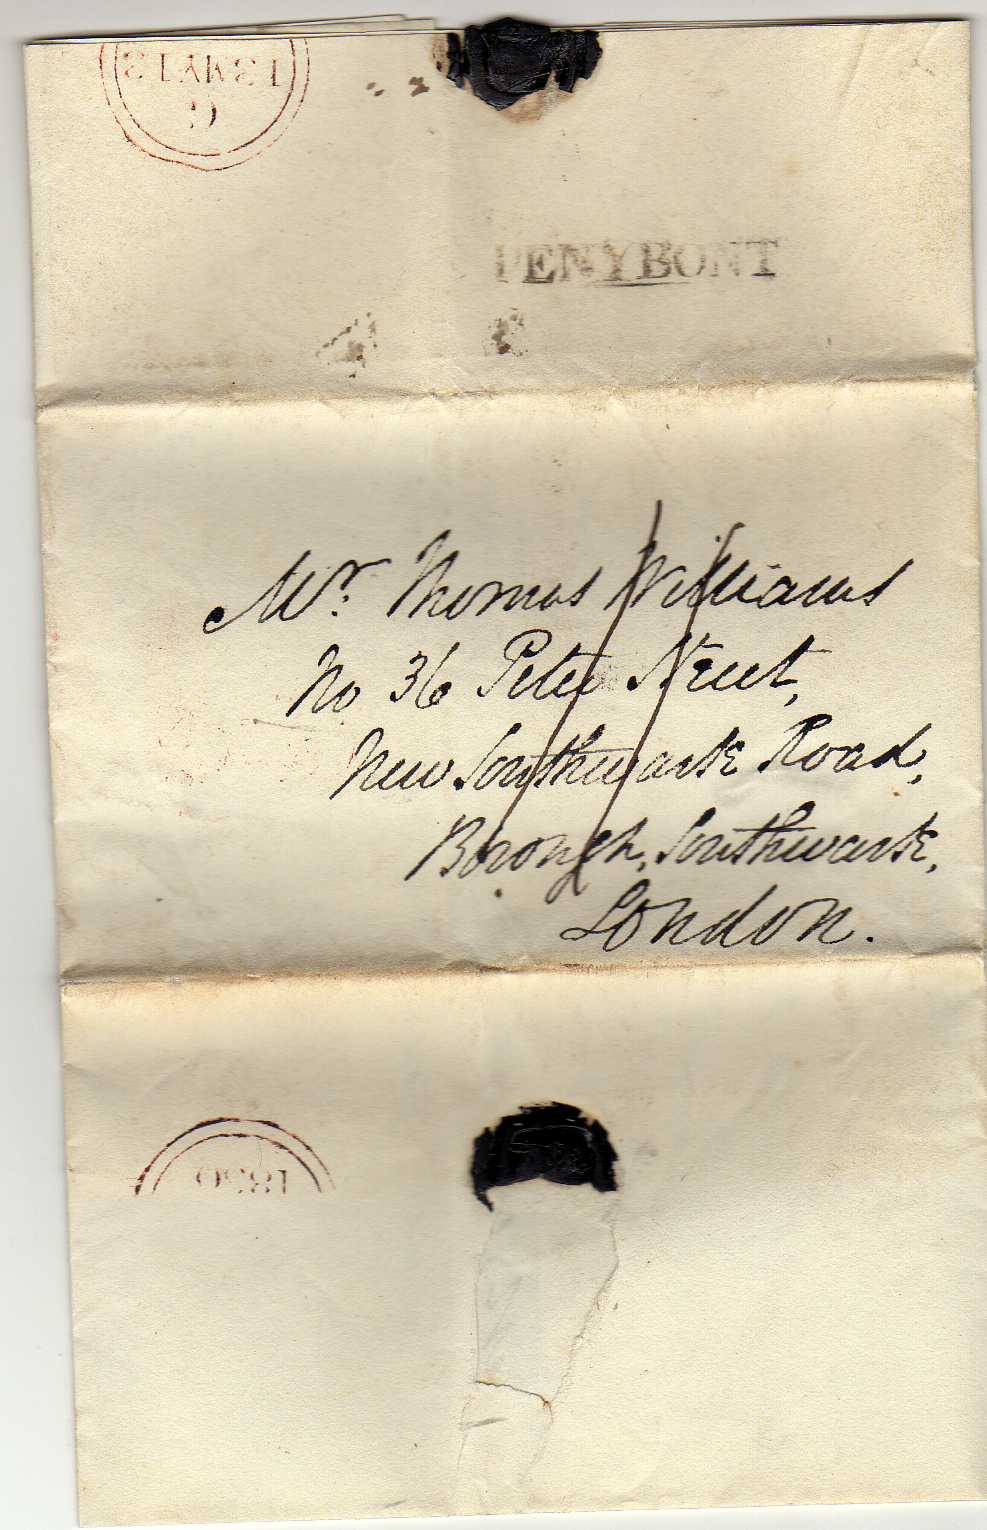 13MY13
PENYBONT
Mr. Thomas Williams
No 36 Peter Street,
New Southwark Road,
Borough, Southwark,
London.